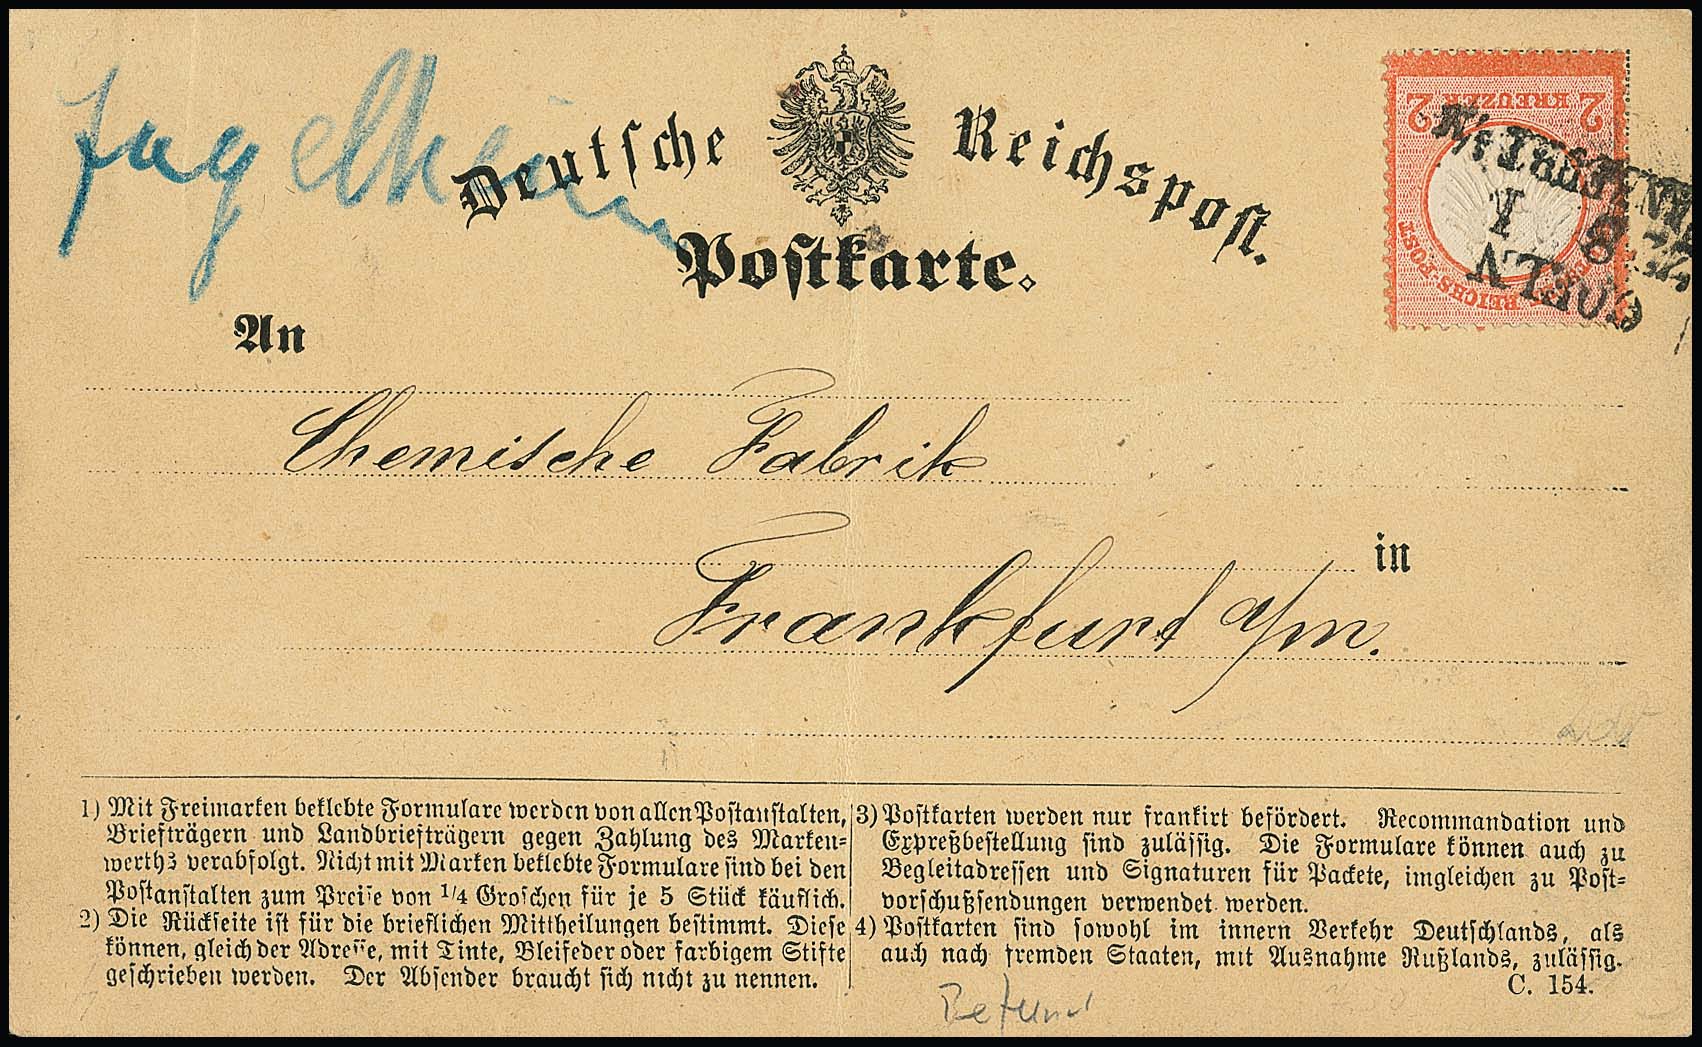 Deutsche Reichspost.
Postkarte.
An
Chemische Fabrik
in
Frankfurt a/m.
2 KREUZER 2
REICHS-POST
1) Mit Freimarken beklebte Formulare werden von allen Postanstalten,
Briefträgern und Landbriefträgern gegen Zahlung des Marken-
werths verabfolgt. Nicht mit Marken beklebte Formulare sind bei den
Postanstalten zum Preise von 1/4 Groschen für je 5 Stück käuflich.
2) Die Rückseite ist für die brieflichen Mittheilungen bestimmt. Diese
können, gleich der Adresse, mit Tinte, Bleifeder oder farbigem Stifte
geschrieben werden. Der Absender braucht sich nicht zu nennen.
3) Postkarten werden nur frankirt befördert. Recommandation und
Expreßbestellung sind zulässig. Die Formulare können auch zu
Begleitadressen und Signaturen für Packete, imgleichen zu Post-
vorschußsendungen verwendet werden.
4) Postkarten sind sowohl im innern Verkehr Deutschlands, als
auch nach fremden Staaten, mit Ausnahme Rußlands, zulässig.
C. 154.